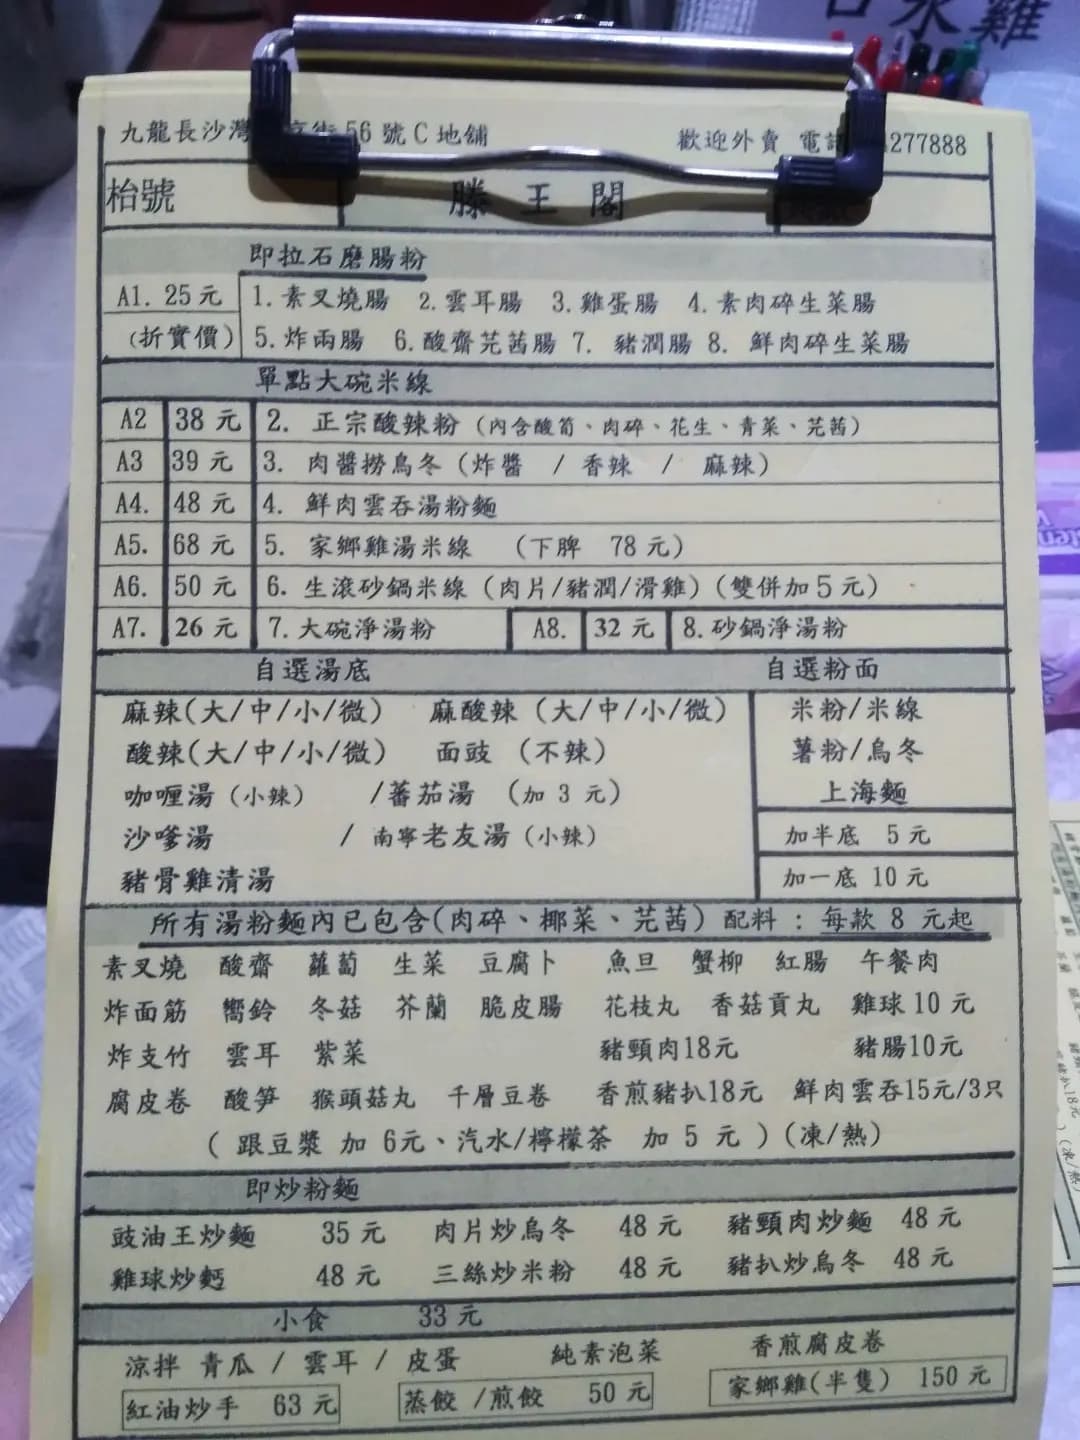 台水雞
九龍長沙灣 街 56 號 C 地舖 歡迎外賣 電話 277888
枱號 滕王閣
即拉石磨腸粉
A1. 25 元 1. 素叉燒腸 2. 雲耳腸 3. 雞蛋腸 4. 素肉碎生菜腸
(折實價) 5. 炸兩腸 6. 酸齋芫茜腸 7. 豬潤腸 8. 鮮肉碎生菜腸
單點大碗米線
A2 38 元 2. 正宗酸辣粉 (內含酸筍、肉碎、花生、青菜、芫茜)
A3 39 元 3. 肉醬撈烏冬 (炸醬 / 香辣 / 麻辣)
A4. 48 元 4. 鮮肉雲吞湯粉麵
A5. 68 元 5. 家鄉雞湯米線 (下脾 78 元)
A6. 50 元 6. 生滾砂鍋米線 (肉片/豬潤/滑雞) (雙併加 5 元)
A7. 26 元 7. 大碗淨湯粉 A8. 32 元 8. 砂鍋淨湯粉
自選湯底 自選粉面
麻辣(大/中/小/微) 麻酸辣 (大/中/小/微) 米粉/米線
酸辣(大/中/小/微) 面豉 (不辣) 薯粉/烏冬
咖喱湯 (小辣) /蕃茄湯 (加 3 元) 上海麵
沙嗲湯 / 南寧老友湯 (小辣) 加半底 5 元
豬骨雞清湯 加一底 10 元
所有湯粉麵內已包含(肉碎、椰菜、芫茜) 配料 : 每款 8 元起
素叉燒 酸齋 蘿蔔 生菜 豆腐卜 魚旦 蟹柳 紅腸 午餐肉
炸面筋 嚮鈴 冬菇 芥蘭 脆皮腸 花枝丸 香菇貢丸 雞球 10 元
炸支竹 雲耳 紫菜 豬頸肉18元 豬腸10元
腐皮卷 酸笋 猴頭菇丸 千層豆卷 香煎豬扒18元 鮮肉雲吞15元/3只
( 跟豆漿 加 6元、汽水/檸檬茶 加 5 元 ) (凍/熱)
即炒粉麵
豉油王炒麵 35 元 肉片炒烏冬 48 元 豬頸肉炒麵 48 元
雞球炒麪 48 元 三絲炒米粉 48 元 豬扒炒烏冬 48 元
小食 33 元
涼拌 青瓜 / 雲耳 / 皮蛋 純素泡菜 香煎腐皮卷
紅油炒手 63 元 蒸餃 /煎餃 50 元 家鄉雞(半隻) 150 元